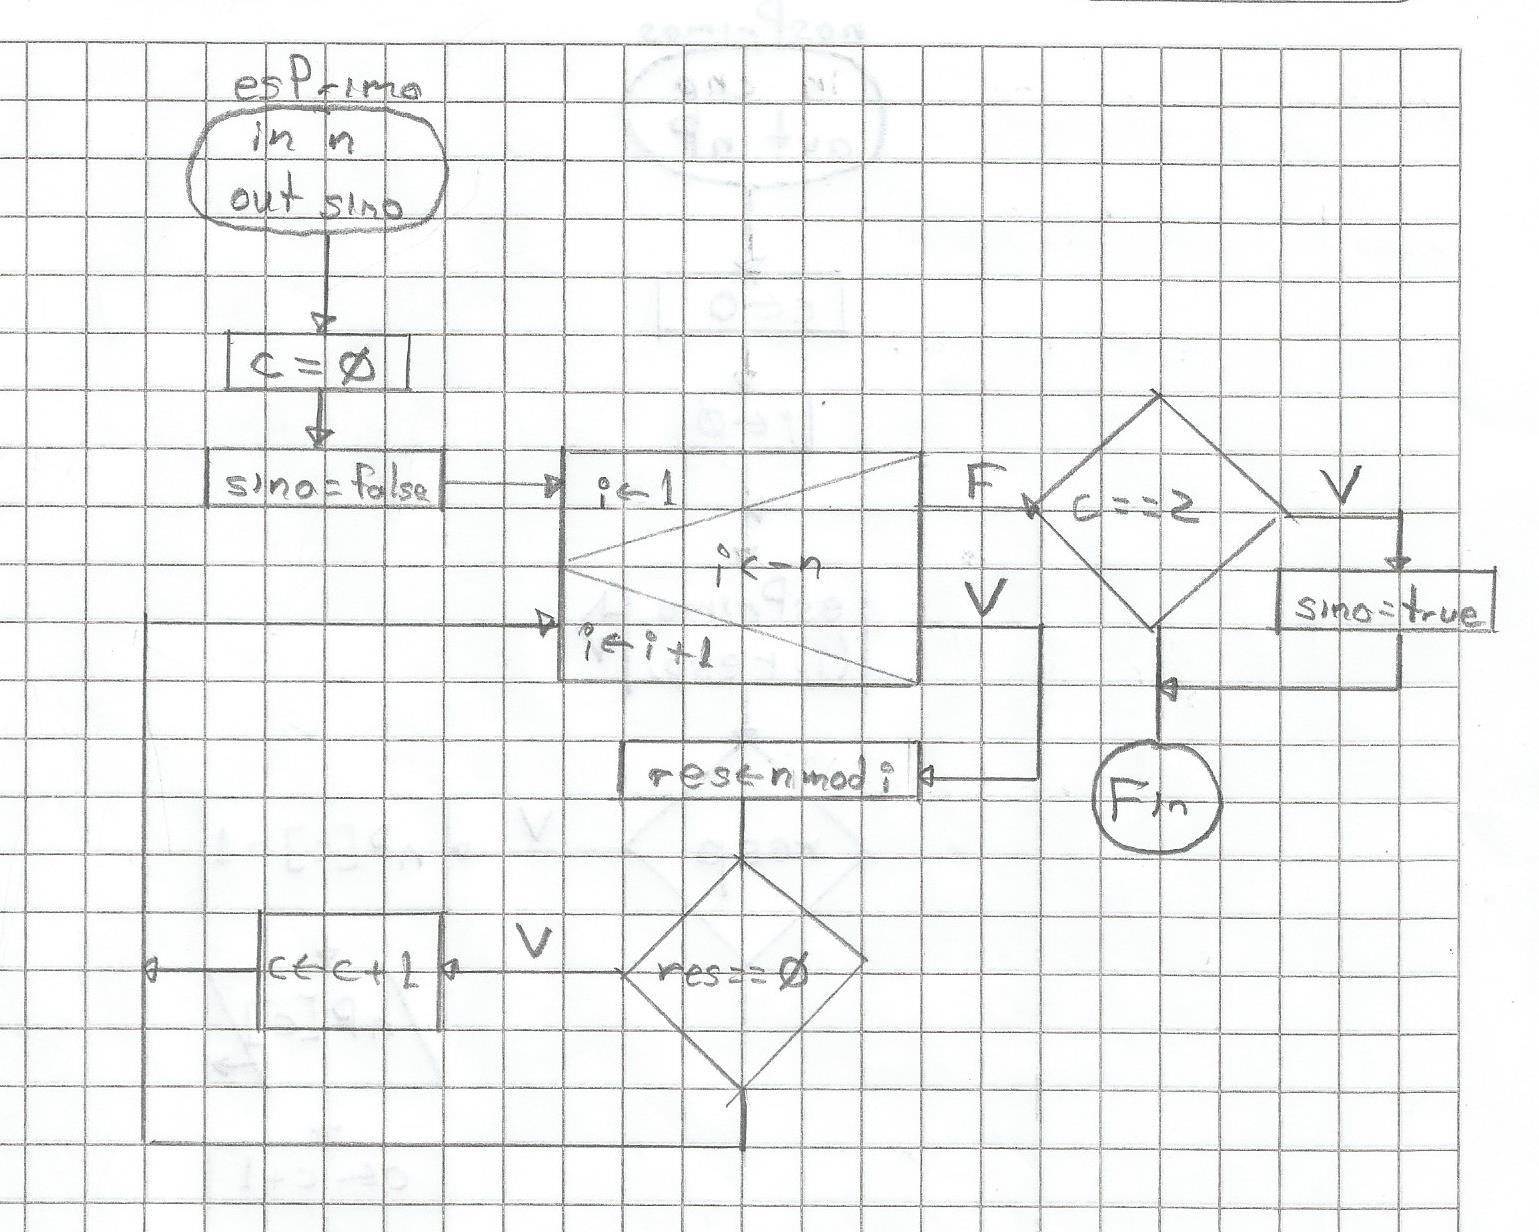 esPrimo
in n
out sino
c = Ø
sino=false
i←1
i<=n
i←i+1
F
V
c==2
V
sino=true
Fin
res←n mod i
res==Ø
V
c←c+1